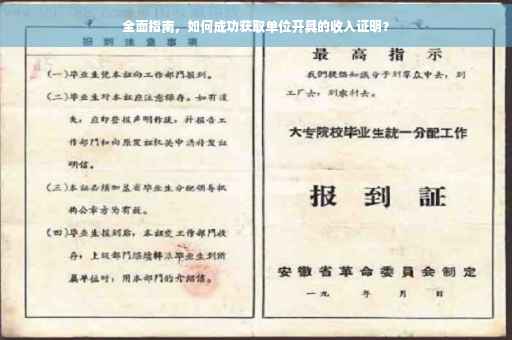 全面指南，如何成功获取单位开具的收入证明？
报到注意事项
(一)毕业生凭本证向工作部门报到。
(二)毕业生对本证应注意保存。如有遗
失，应即登报声明作废，并报告工
作部门和向原发证机关申请补发证
明信。
(三)本证必须加盖省毕业生分配领导机
构公章方为有效。
(四)毕业生报到后，本证交工作部门收
存；上级部门
毕业生到所
属单位时，用本部门的介绍信。
最高指示
我们提倡知识分子到群众中去，到
工厂去，到农村去。
大专院校毕业生统一分配工作
报到证
安徽省革命委员会制定
一九 年 月 日